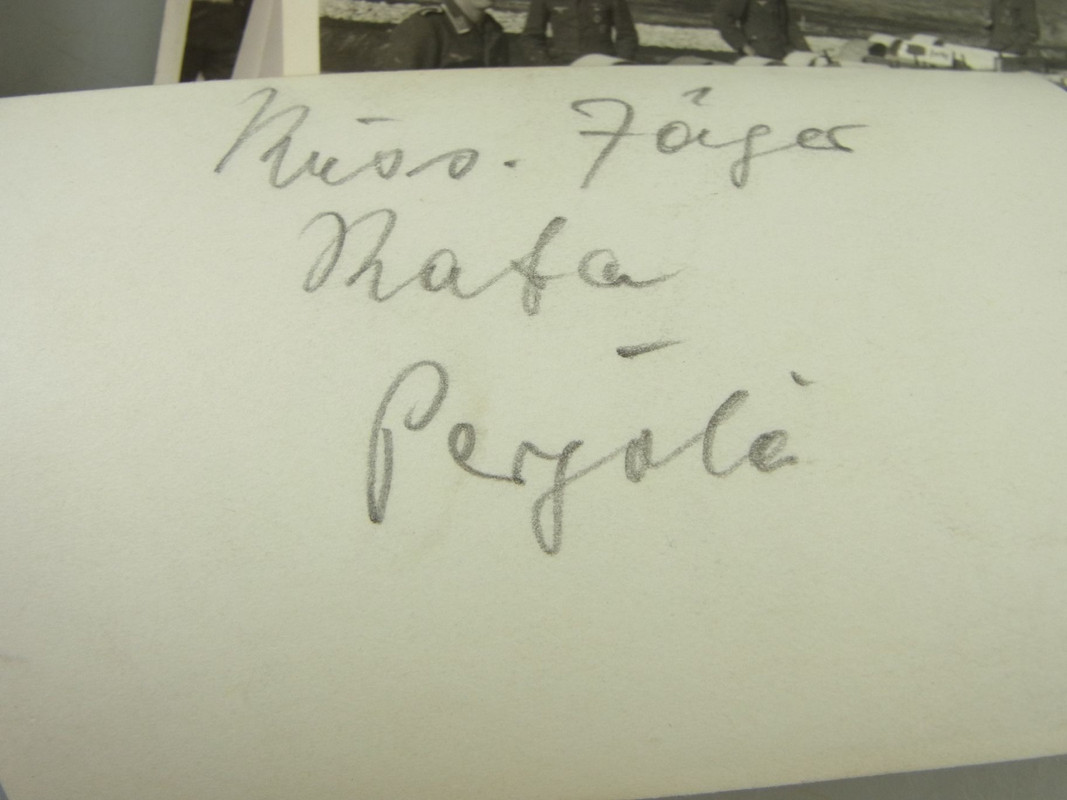 Russ. Jäger
Rata
Pergola